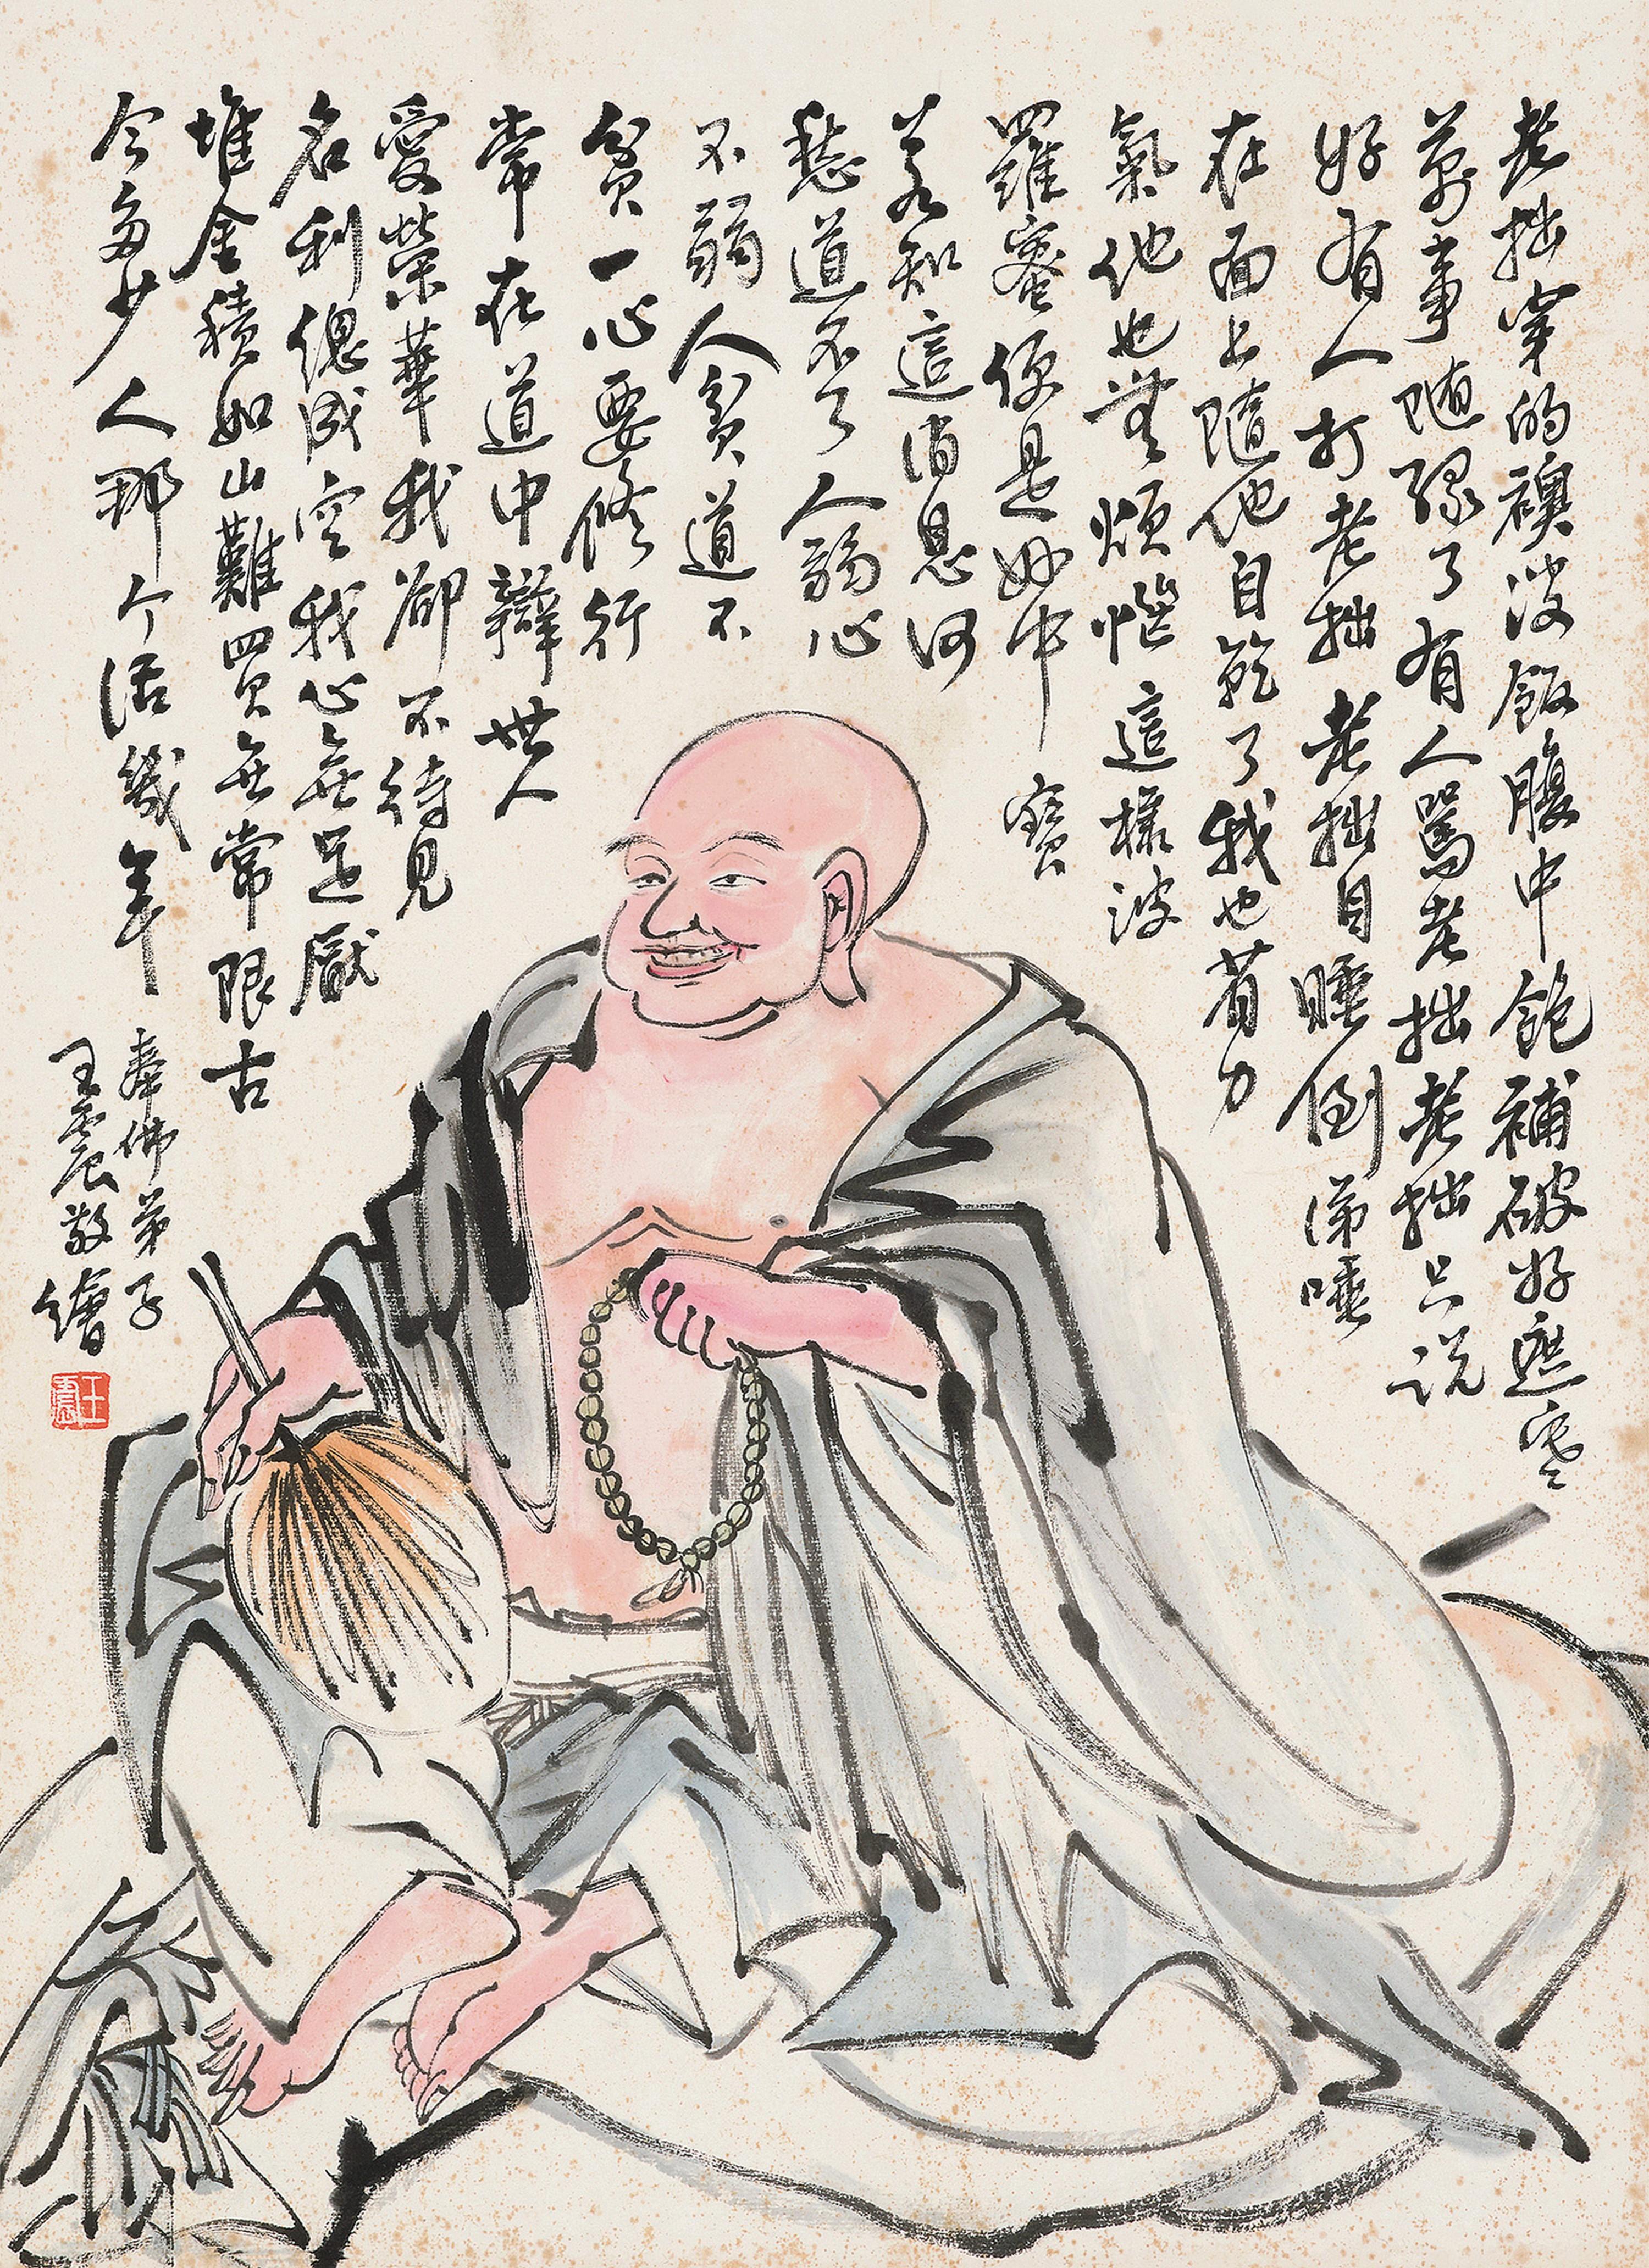 老拙穿的襖淡飯腹中飽補破好遮寒
萬事随緣了有人罵老拙老拙只説
好有人打老拙老拙自睡倒涕唾
在面上隨他自乾了我也省力
氣他也無煩惱這樣波
羅蜜便是妙中寶
若知這消息何
愁道不了人弱心
不弱人貧道不
貧一心要修行
常在道中辦世人
愛榮華我卻不待見
名利總成空我心無足厭
堆金積如山難買無常限古
今多少人那个活幾年
奉佛弟子
王震敬繪
王震